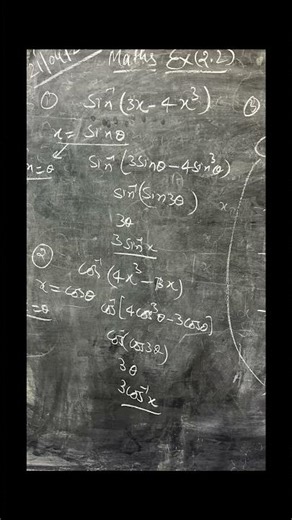 21/04/
Maths Ex(2.2)
① sin⁻¹(3x - 4x³)
x = sinθ
sin⁻¹(3sinθ - 4sin³θ)
x = θ
sin⁻¹(sin3θ)
3θ
3sin⁻¹x
② cos⁻¹(4x³ - 3x)
x = cosθ
cos⁻¹[4cos³θ - 3cosθ]
= θ
cos⁻¹(cos3θ)
3θ
3cos⁻¹x